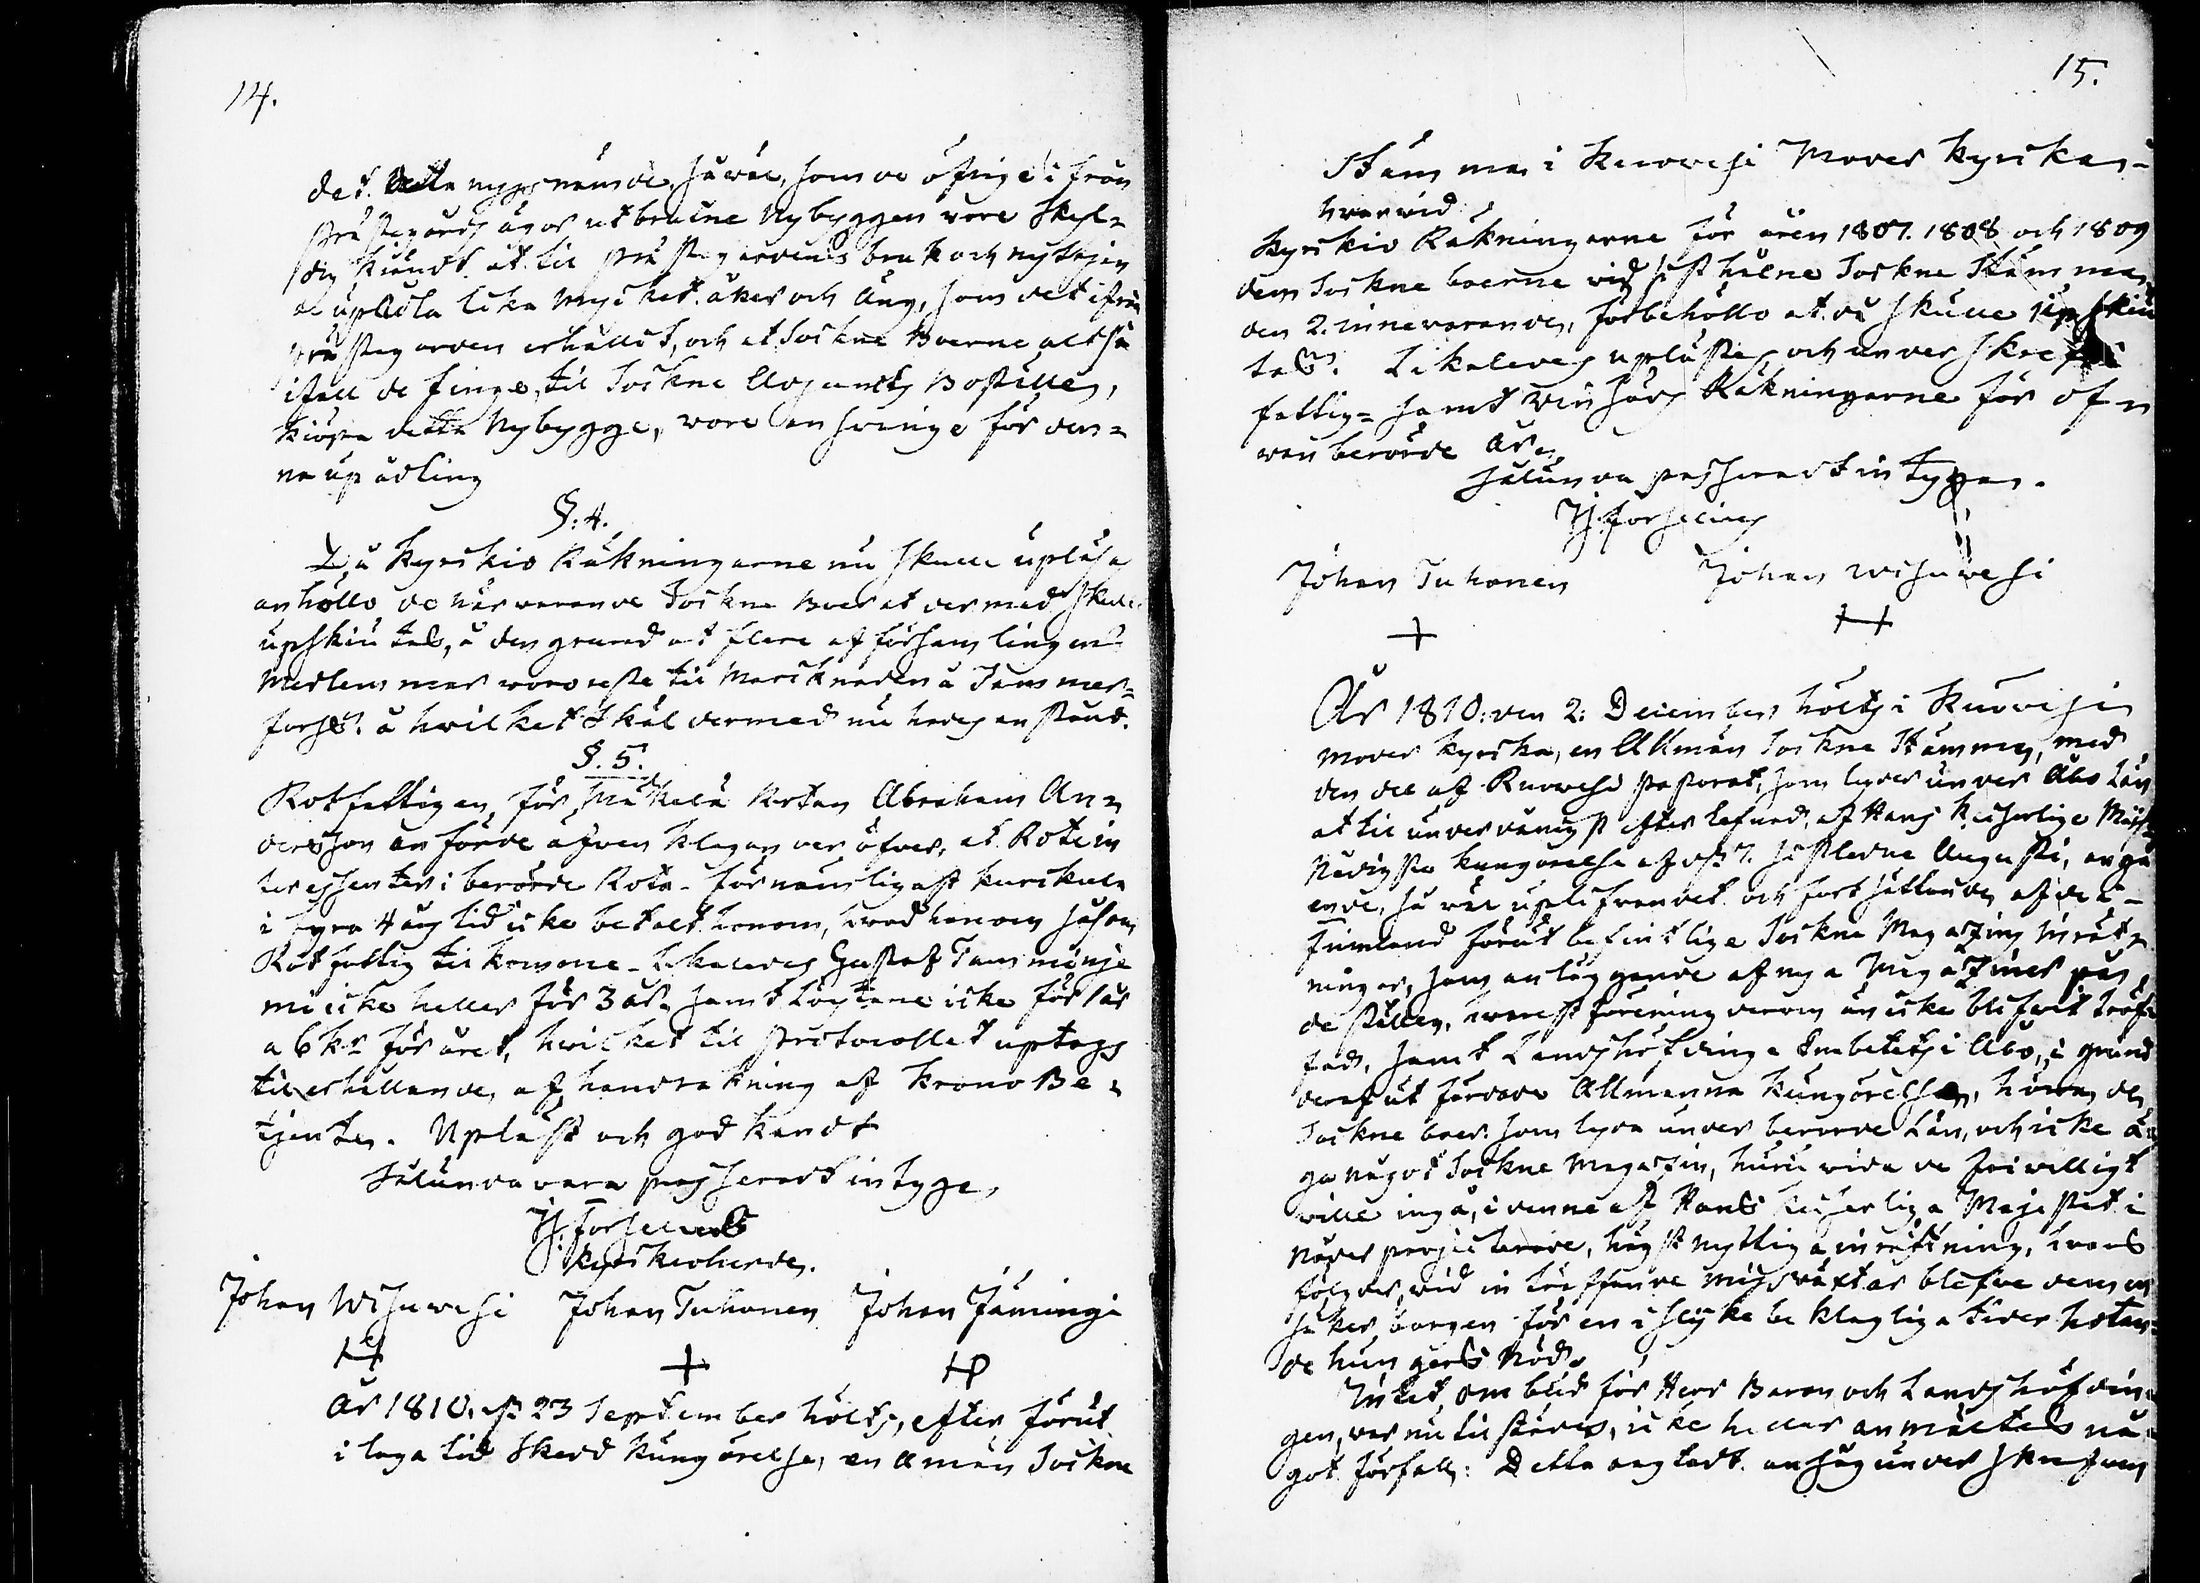 14.
det. Detta nyssnämnde, såwäl, som de öfrige i från
Prästegårds ägor utbrutne Nybyggen wore skyl-
dig kändt. at til Prästegårdens bruk och nyttjan
de upodla lika mycket åker och Äng, som det ifrån
Prästegården erhållit, och at Sockne Boerne altså
ifall de finge, til Sockne Adjuncts Boställe,
kiöpa detta Nybygge, wore answarige för den-
na upodling
§. 4.
Då Kyrkio Räkningarne nu skulle upläsas
anhöllo de närwarande Sockne Boer at dermed skulle
upskiutas, å den grund at flere af församlingens
Medlemmar woro reste til Marknaden å Tammer-
fors: å hwilket skäl dermed nu hades anstånd.
§. 5.
Rotfattigen för Mäkelä Rotan Abraham An-
dersson anförde äfven klagan der öfver, at Rotein
teressenter i berörde Rota - förnämligast Kurikula
i fyra 4 års tid icke betalt honom, hwad honom såsom
Rotfattig tilkomme - Likaledes Gustaf Tamminje
mi icke heller för 3 år, samt Löytäne icke för 1 år
a 6 kr för året, hwilket til Protocollet uptogs
til erhållande af handräkning af Krono Be-
tjenten. Upläst och godkändt
Sålunda wara passeradt intyga,
Hj. Forselius
Kyrkioherde.
Johan Wisuwesi Johan Tuhanen Johan Jäminge
År 1810. d. 23 September hölts, efter förut
i laga tid skedd kungörelse, en allmän Sockne
15.
Stämma i Ruowesi Moder Kyrka,-
hwarwid
Kyrkio Räkningarne för åren 1807. 1808 och 1809
dem Sockne boerne wid sist hålne Sockne Stämma
den 2. innewarande, förbehöllo at då skulle upskiu
tas. Likaledes uplästes och underskrefs
fattig- samt Winhårs Räkningarne för of-
wanberörde År,
Sålunda passeradt intygar.
Hj. Forselius
Johan Tuhanen Johan Wisuwesi
År 1810: den 2: December hölts i Ruowesi
moder kyrka, en Allmän Sockne Stämma, med
den del af Ruowesi Pastorat, som lyder under Åbo Län
at til underdånigst efterlefnad af Hans Keiserlige Maj:ts
Nådigste kungörelse af d. 7. sistledne Augusti, angå
ende, så wäl uplifvandet och fortsättande af de i
Finnland förut befintlige Sockne Magazins Inrätt-
ningar, som anläggande af nya Magaziner på,
de ställen, hwarest förening derom än icke blifwit träf-
fad, samt Landshöfdinge Embetets i Åbo, i grund
deraf utfärdade Allmänna kungörelse, höra, de
Sockne boer. som lyda under berörde Län, och icke ä-
ga något Sockne Magazin, huru wida de friwilligt
wille ingå, i denne af Hans Keiserliga Majestet i
Nåder projecterade, högst nyttiga inrättning, hwars
följder, wid inträffande misswäxtår blefve dem en
säker borgen för en i slike beklagliga tider hotan-
de hungers Nöd.
Intet ombud för Herr Baron och Landshöfdin-
gen, war nu tilstädes, icke heller anmältes nå-
got förfall: Detta oagtadt. ansåg underskrefven